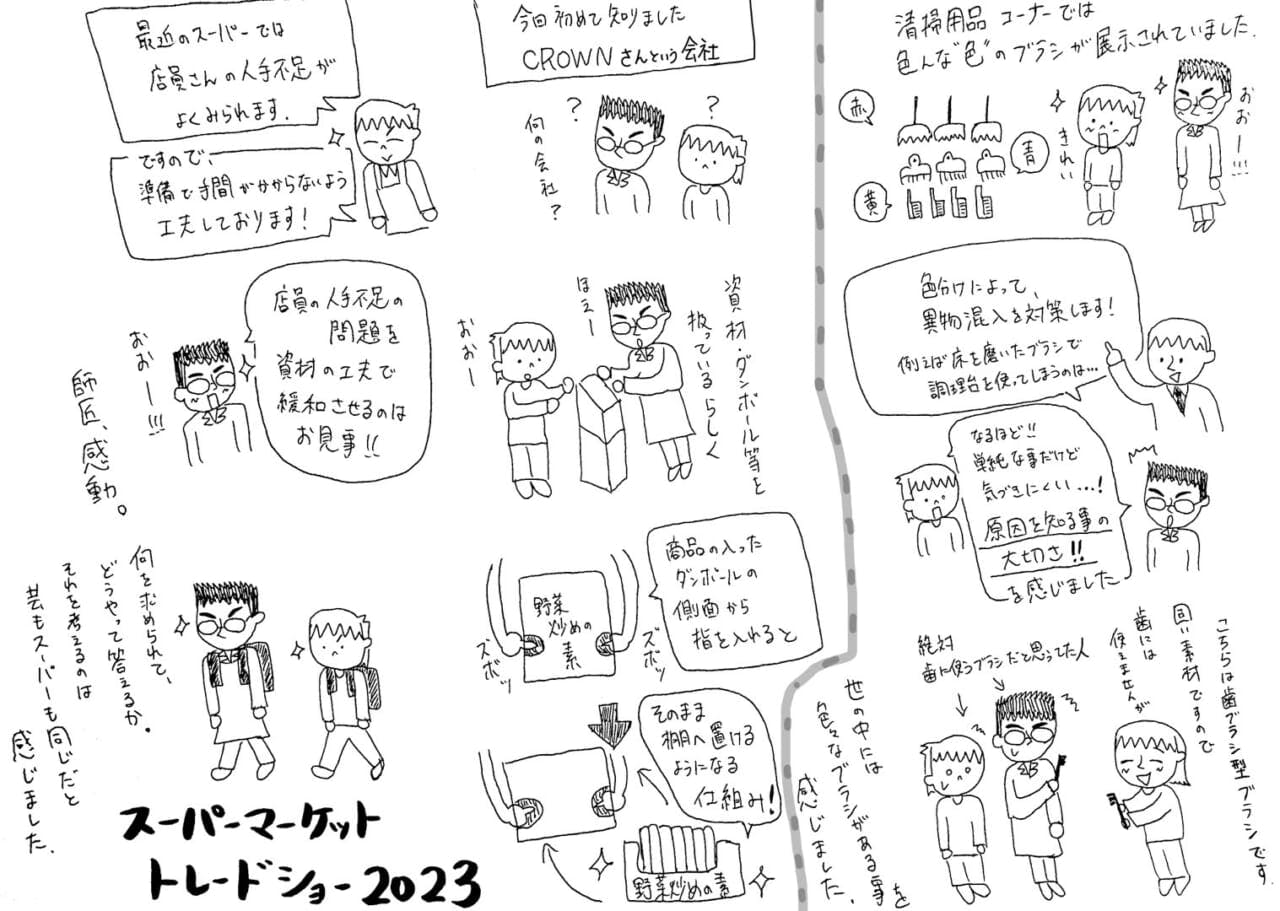 清掃用品コーナーでは
色んな“色”のブラシが展示されていました。
赤
青
黄
きれい
おおー!!!
色分けによって、
異物混入を対策します!
例えば床を磨いたブラシで
調理台を使ってしまうのは…
なるほど!!
単純な事だけど
気づきにくい…!
原因を知る事の
大切さ!!
を感じました
こちらは歯ブラシ型ブラシです。
同い素材ですので
歯には
使えませんが
絶対
歯に使うブラシだと思ってた人
世の中には
色々なブラシがある事を
感じました。
今回初めて知りました
CROWNさんという会社
?
?
何の会社?
資材・ダンボール等を
扱っているらしく
ほえー
おおー
商品の入った
ダンボールの
側面から
指を入れると
野菜
炒めの
素
ズボッ
ズボッ
そのまま
棚へ置ける
ようになる
仕組み!
野菜炒めの素
最近のスーパーでは
店員さんの人手不足が
よくみられます。
ですので、
準備で手間がかからないよう
工夫しております!
店員の人手不足の
問題を
資材の工夫で
緩和させるのは
お見事!!
おおー!!!
師匠、感動。
何を求められて、
どうやって答えるか。
それを考えるのは
芸もスーパーも同じだと
感じました。
スーパーマーケット
トレードショー2023